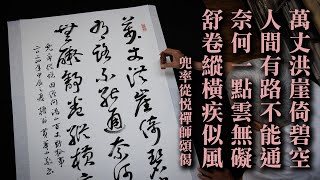 萬丈洪崖倚碧空
人間有路不能通
奈何一點雲無礙
舒卷縱橫疾似風
兜率從悅禪師頌偈
萬丈洪崖倚碧
有路不能通奈
無礙舒卷縱橫